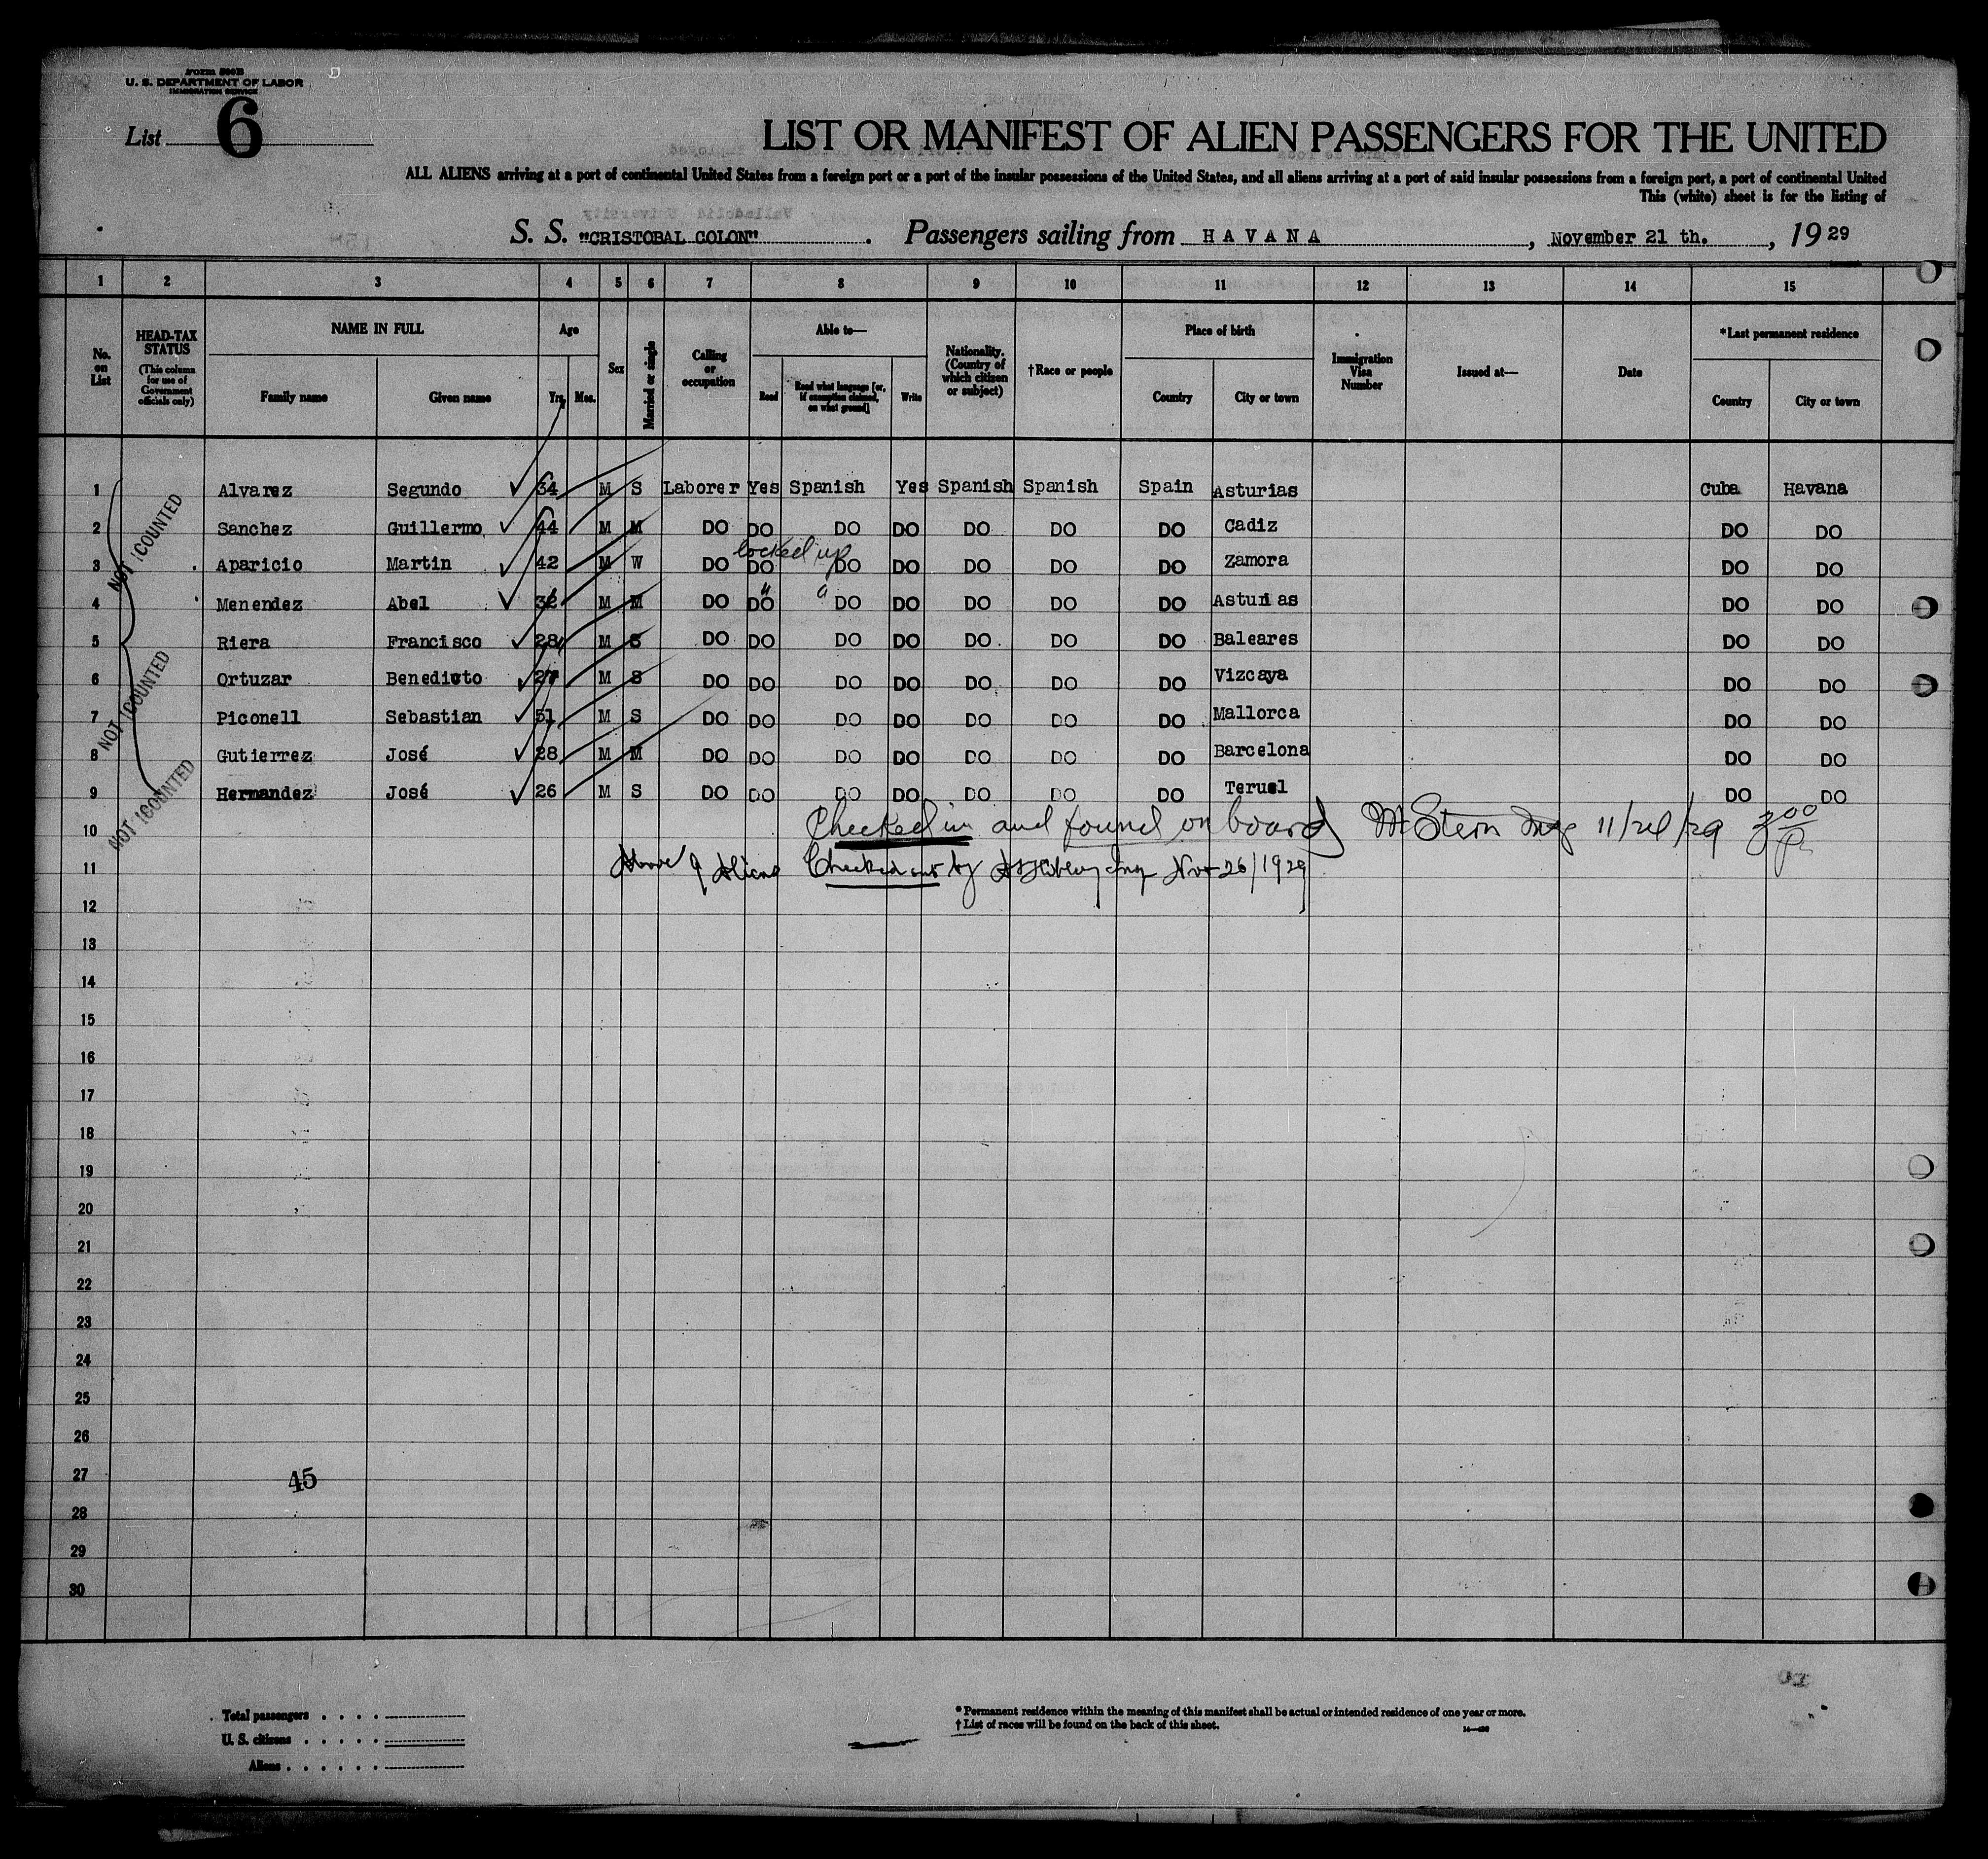 Form 500B
U. S. DEPARTMENT OF LABOR
IMMIGRATION SERVICE
List 6
LIST OR MANIFEST OF ALIEN PASSENGERS FOR THE UNITED
ALL ALIENS arriving at a port of continental United States from a foreign port or a port of the insular possessions of the United States, and all aliens arriving at a port of said insular possessions from a foreign port, a port of continental United
This (white) sheet is for the listing of
S. S. "CRISTOBAL COLON". Passengers sailing from HAVANA, November 21 th., 1929
1 2 3 4 5 6 7 8 9 10 11 12 13 14 15
No. on List
HEAD-TAX STATUS
(This column for use of Government officials only)
NAME IN FULL
Family name Given name
Age
Yrs. Mos.
Sex
Married or single
Calling or occupation
Able to—
Read Read what language [or, if exemption claimed, on what ground] Write
Nationality. (Country of which citizen or subject)
†Race or people
Place of birth
Country City or town
Immigration Visa Number
Issued at—
Date
*Last permanent residence
Country City or town
1 Alvarez Segundo 34 M S Laborer Yes Spanish Yes Spanish Spanish Spain Asturias Cuba Havana
2 Sanchez Guillermo 44 M M DO DO DO DO DO DO DO Cadiz DO DO
locked up
3 Aparicio Martin 42 M W DO DO DO DO DO DO DO Zamora DO DO
4 Menendez Abel 32 M M DO DO DO DO DO DO DO Asturias DO DO
5 Riera Francisco 28 M S DO DO DO DO DO DO DO Baleares DO DO
6 Ortuzar Benedicto 27 M S DO DO DO DO DO DO DO Vizcaya DO DO
7 Piconell Sebastian 51 M S DO DO DO DO DO DO DO Mallorca DO DO
8 Gutierrez José 28 M M DO DO DO DO DO DO DO Barcelona DO DO
9 Hernandez José 26 M S DO DO DO DO DO DO DO Teruel DO DO
NOT COUNTED
NOT COUNTED
NOT COUNTED
10 Checked in and found on board M Stern Insp 11/24/29 3 00
11 Above 9 Aliens Checked out by Insp Nov 26/1929
12
13
14
15
16
17
18
19
20
21
22
23
24
25
26
27 45
28
29
30
Total passengers . . . .
U. S. citizens . . . . .
Aliens . . . . . .
* Permanent residence within the meaning of this manifest shall be actual or intended residence of one year or more.
† List of races will be found on the back of this sheet.